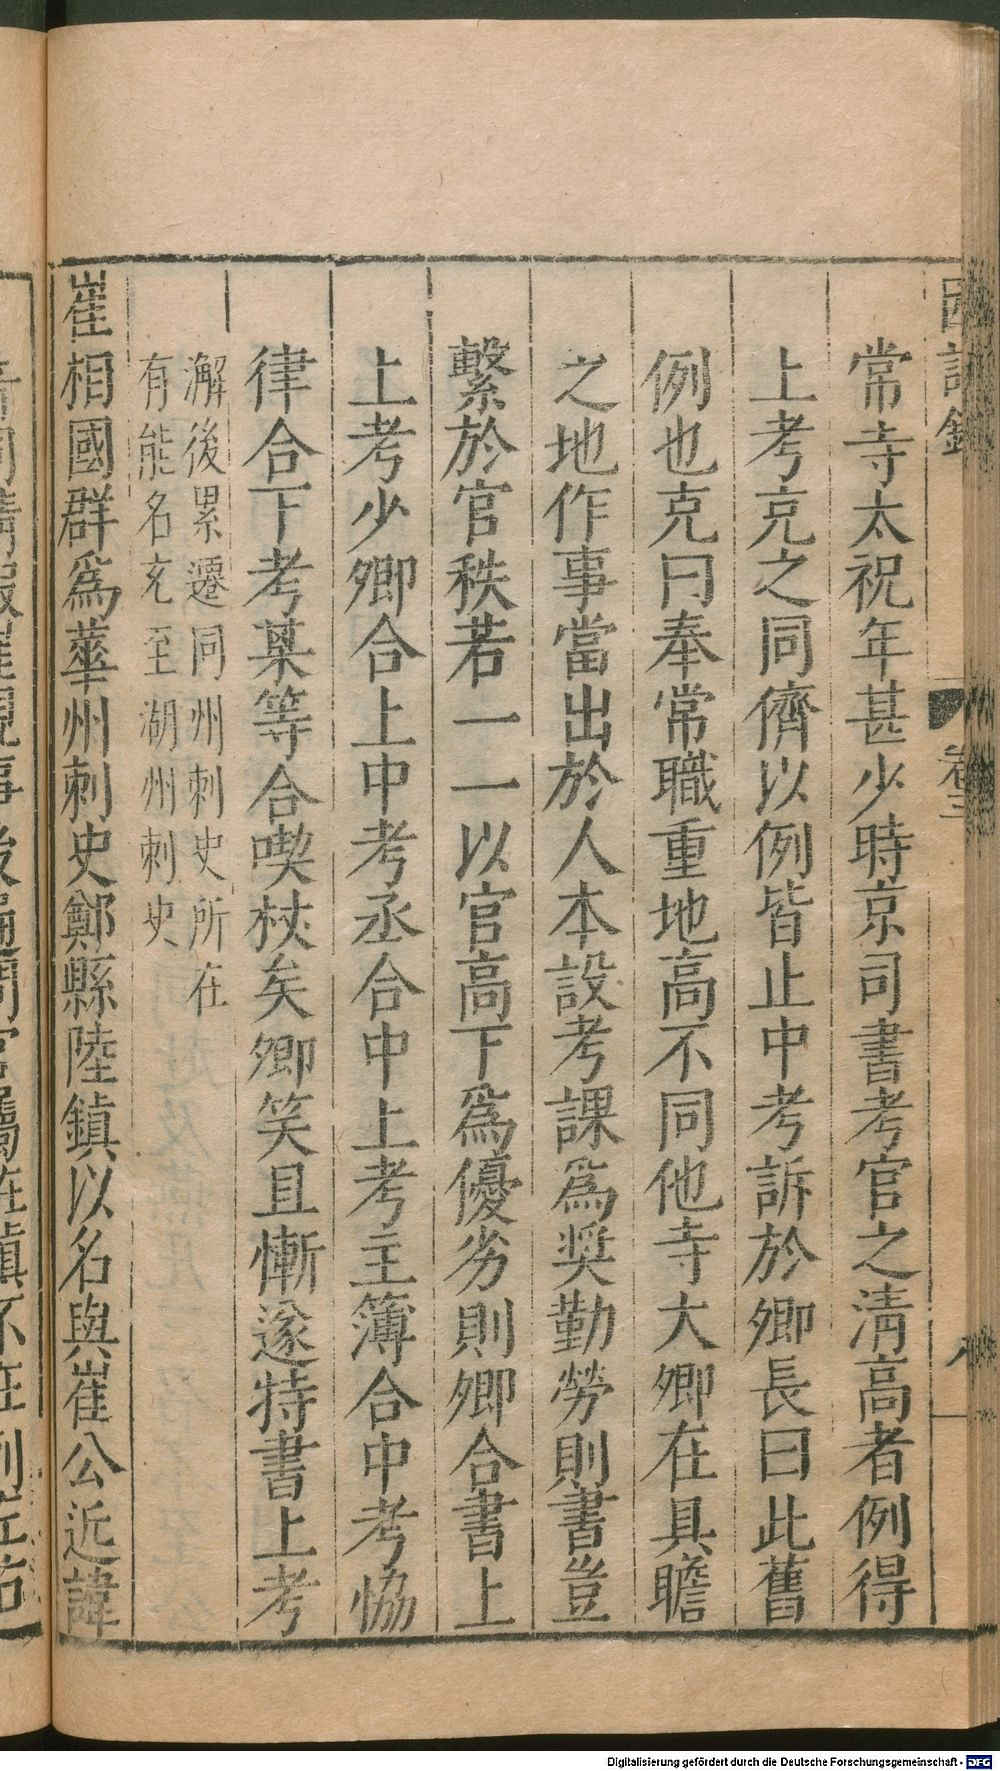 常寺太祝年甚少時京司書考官之清高者例得
上考克之同儕以例皆止中考訴於卿長曰此舊
例也克曰奉常職重地高不同他寺大卿在具瞻
之地作事當出於人本設考課爲奨勤勞則書豈
繫於官秩若一一以官高下爲優劣則卿合書上
上考少卿合上中考丞合中上考主簿合中考恊
律合下考某等合喫杖矣卿笑且慚遂特書上考
澥後累遷同州刺史所在
有能名克至湖州刺史
崔相國群爲華州刺史鄭縣陸鎮以名與崔公近諱
卷三
Digitalisierung gefördert durch die Deutsche Forschungsgemeinschaft - DFG